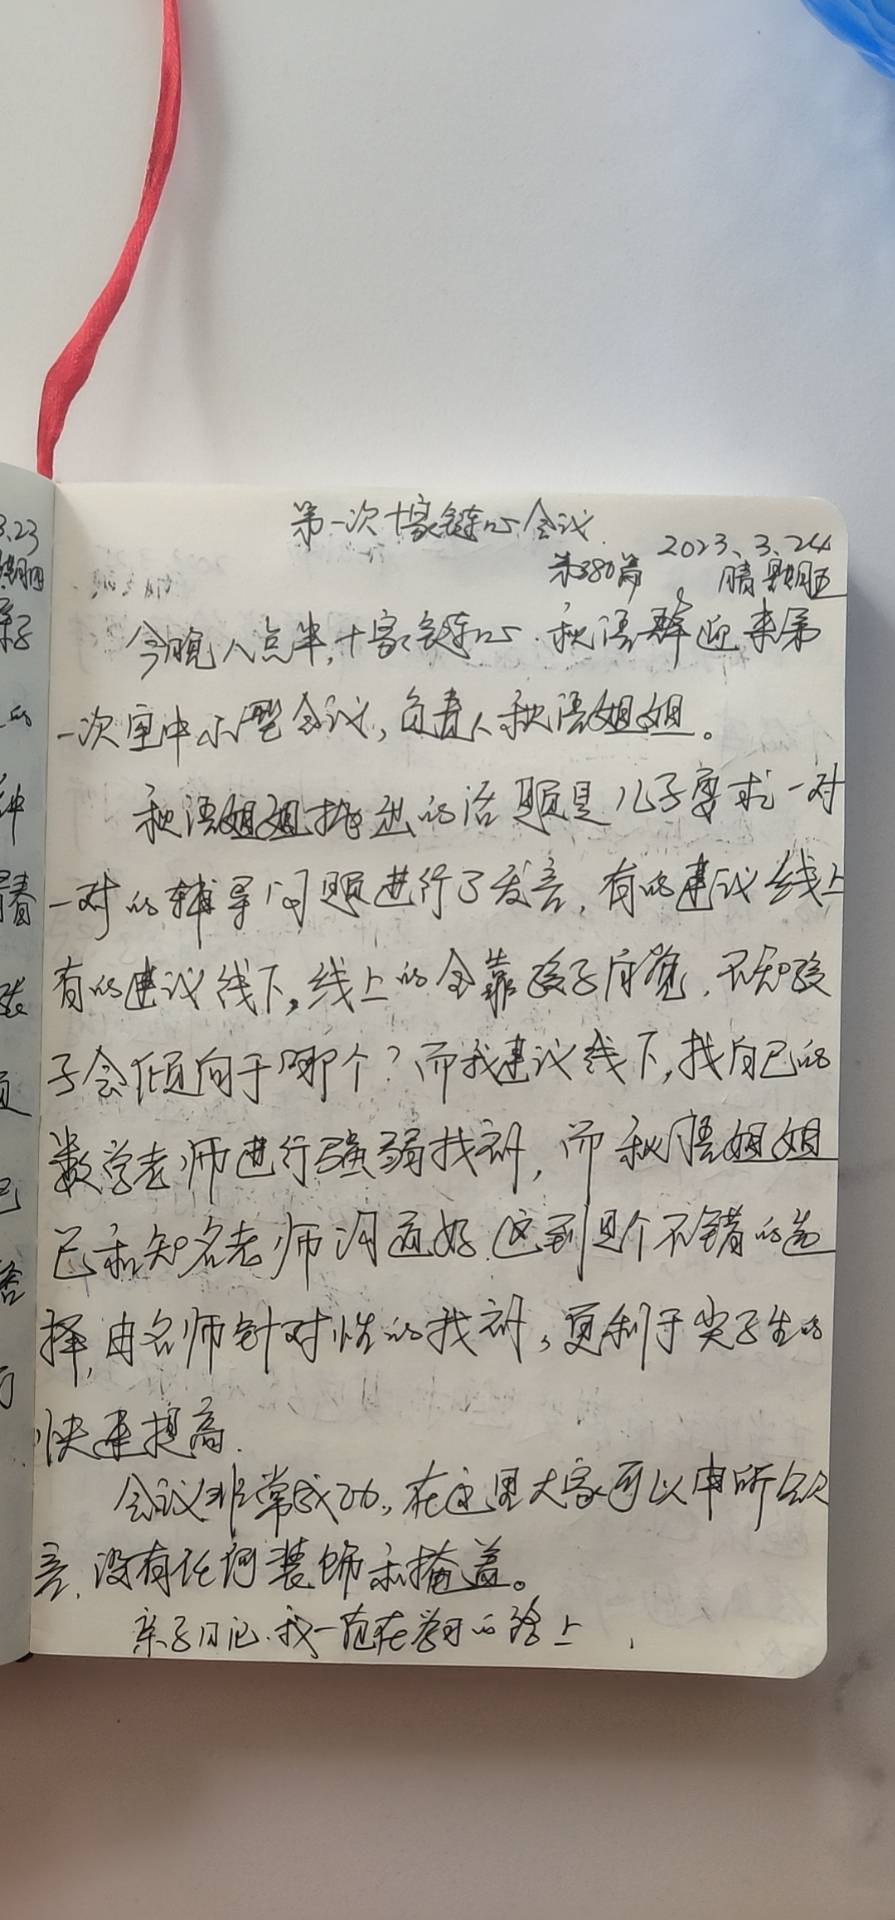 第一次十家链心会议
2023、3、24
第380篇 晴 星期五
今晚八点半,十家链心.秋语群迎来第
一次空中小型会议,负责人秋语姐姐。
秋语姐姐抛出的话题是儿子要求一对
一对的辅导问题进行了发言,有的建议线上
有的建议线下,线上的全靠孩子自觉,不知孩
子会倾向于哪个?而我建议线下,找自己的
数学老师进行强弱找补,而秋语姐姐
已和知名老师沟通好,这到是个不错的选
择,由名师针对性的找补,更利于尖子生的
快速提高.
会议非常成功,在这里大家可以畅所欲
言,没有任何装饰和掩盖。
亲子日记.我一直在学习的路上
3.23
星期四
亲子
的